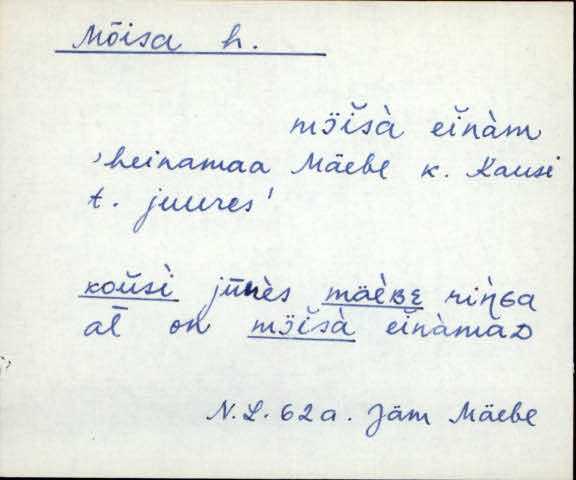 Mõisa h.
mɔ̈ĭsà eĭnàm
'heinamaa Mäebe k. Kausi
t. juures'
koŭsì jūrès mäèʙᴇ riŋɢa
al̄ on mɔ̈ĭsà eĭnàmaᴅ
N.L. 62a. Jäm Mäebe